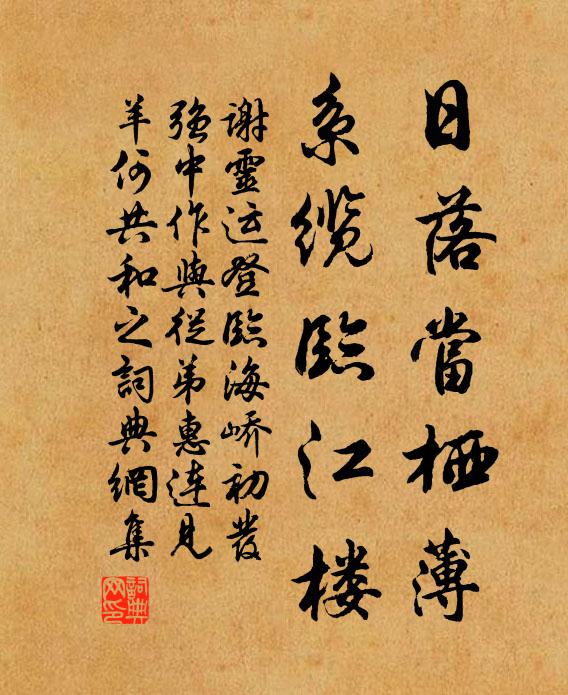 日落當栖薄
系纜臨江楼
謝靈运登臨海峤初發
强中作與從弟惠连見
羊何共和之詞典網集
詞典網印